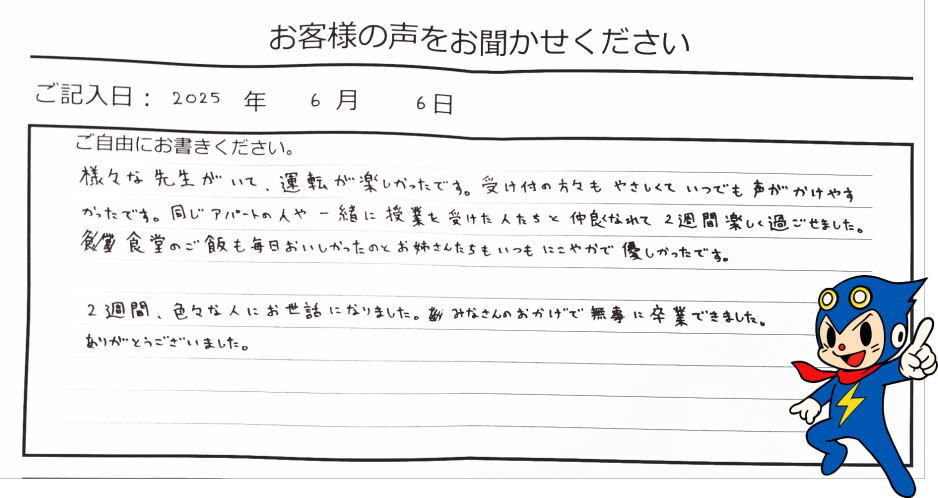 お客様の声をお聞かせください
ご記入日： 2025 年 6 月 6日
ご自由にお書きください。
様々な先生がいて、運転が楽しかったです。受け付の方々も やさしくて いつでも 声が かけやす
かったです。同じアパートの人や 一緒に 授業を 受けた人たちと 仲良くなれて 2週間楽しく過ごせました。
食堂のご飯も毎日おいしかったのとお姉さんたちもいつもにこやかで優しかったです。
2週間、色々な人にお世話になりました。みなさんのおかげで無事に卒業できました。
ありがとうございました。